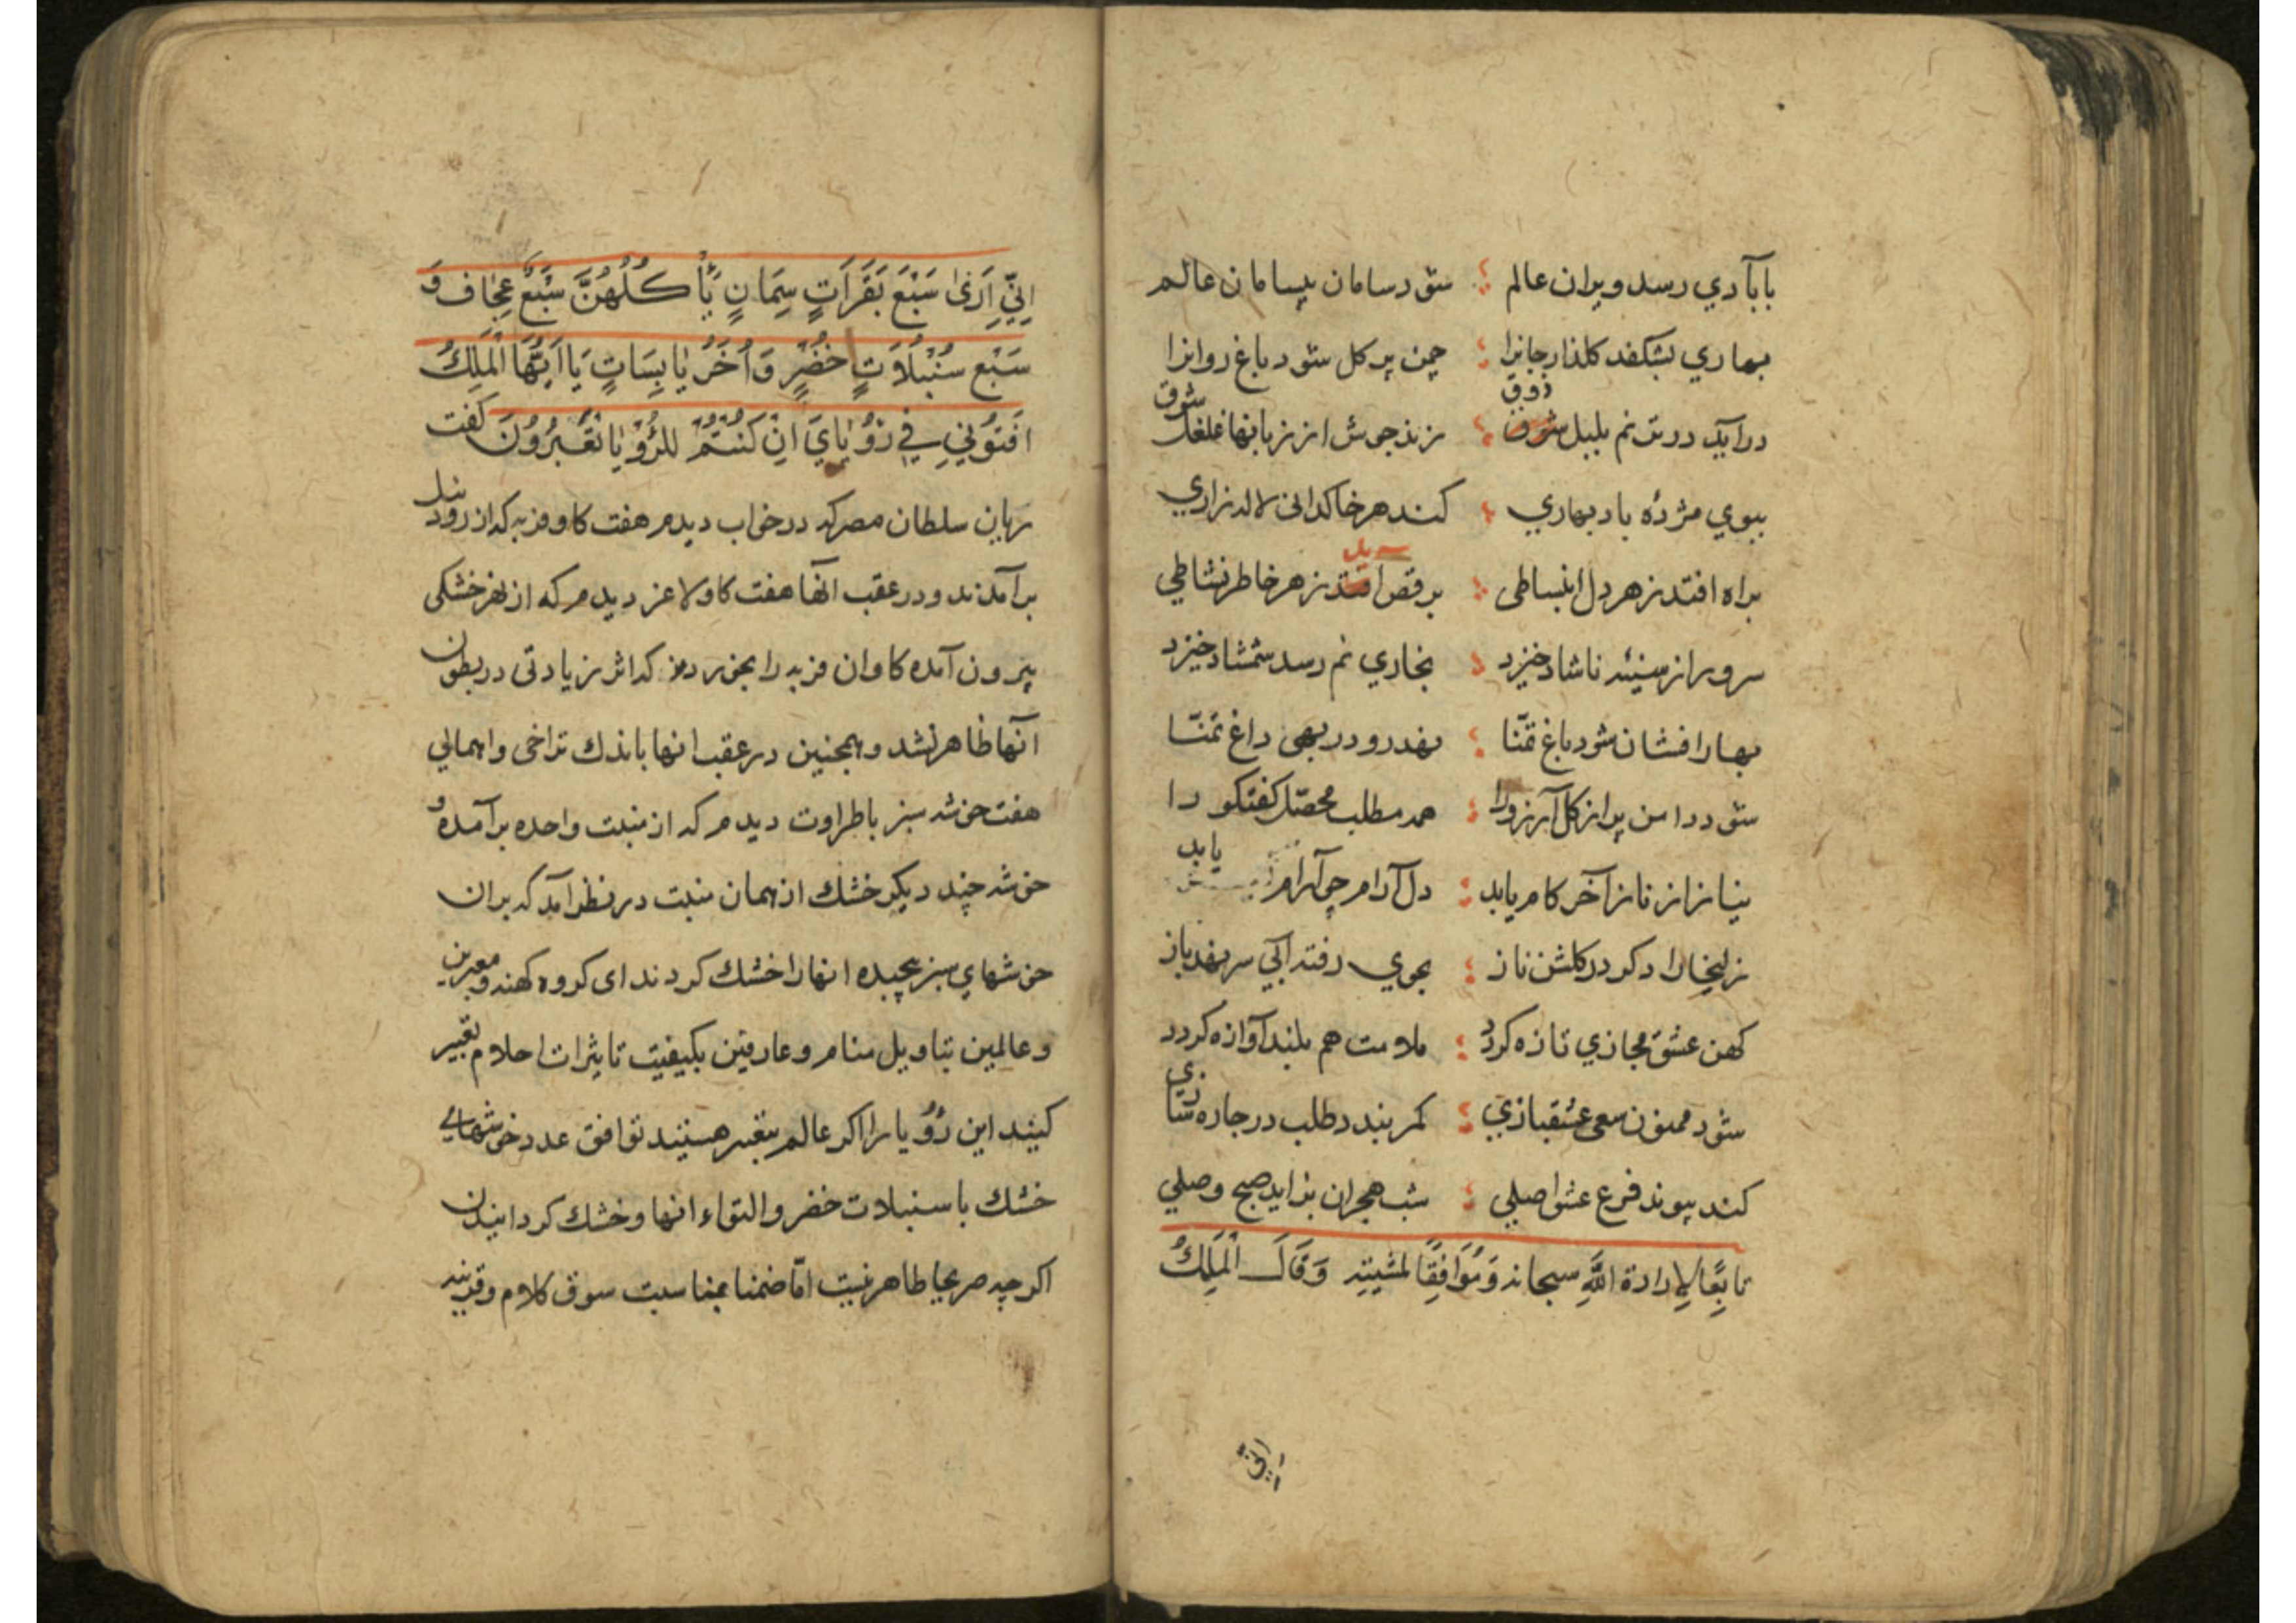 بابآدي رسد ويران عالم ؛ شود سامان بيسامان عالم
بهاري بشكفد كلذار جانرا ؛ چمن پر كل شود باغ روانرا
ذوق شوق
درآيد در ترنم بلبل شوق ؛ زند جوش از زبانها غلغل
ببوي مژدهٔ باد بهاري ؛ كند هر خاكدانى لاله زاري
براه افتد ز هر دل انبساطى ؛ برقص آيد ز هر خاطر نشاطي
سرور از سينه ناشاد خيزد ؛ بخاري نم رسد شمشاد خيزد
بهار افشان شود باغ تمنّا ؛ نهد رو در بهى داغ تمنّا
شود دامن پر از كل آرزو را ؛ همه مطلب محصّل كفتكو را
نياز از ناز آخر كام يابد ؛ دل آرام جو آرام يابد
زليخا را دكر در كلشن ناز ؛ بجوي رفته آبي سر نهد باز
كهن عشق مجازي تازه كردد ؛ ملامت هم بلند آوازه كردد
شود ممنون سعى عشقبازي ؛ كمر بندد طلب در چاره سازي
كند پيوند فرع عشق اصلي ؛ شب هجران بزايد صبح وصلي
تابِعًا لِارادة اللَّهِ سبحانه وَمُوَافِقًا لمشيته وَقَالَ الْمَلِكُ
اِنّي
اِنِّي اَرَىٰ سَبْعَ بَقَرَاتٍ سِمَانٍ يَأْكُلُهُنَّ سَبْعٌ عِجَافٌ وَ
سَبْع سُنْبُلَاتٍ خُضْرٍ وَاُخَرُ يَابِسَاتٍ يَا اَيُّهَا الْمَلِكُ
افْتُونِي فِي رُؤْيَايَ اِنْ كُنْتُمْ لِلرُّؤْيَا تَعْبُرُونَ كفت
ريان سلطان مصر كه در خواب ديدم هفت كاو فربه كه از رود نيل
برآمدند و در عقب آنها هفت كاو لاغر ديدم كه از نهر خشكى
بيرون آمده كاوان فربه را بخوردند كه اثر زيادتى در بطون
آنها ظاهر نشد و همچنين در عقب انها باندك تراخى و اهمالي
هفت خوشه سبز با طراوت ديدم كه از منبت واحده برآمده و
خوشه چند ديكر خشك از همان منبت در نظر آمد كه بران
خوشهاي سبز پيچيده انها را خشك كردند اى كروه كهنه و معبرين
و عالمين بتاويل منام و عارفين بكيفيت تاثيرات احلام تعبير
كنيد اين رُؤْيا را اكر عالم بتعبير هستيد توافق عدد خوشهاي
خشك با سنبلات خضر و التواء انها و خشك كردانيدن
اكر چه صريحا ظاهر نيست امّا ضمنا بمناسبت سوق كلام و قرينه